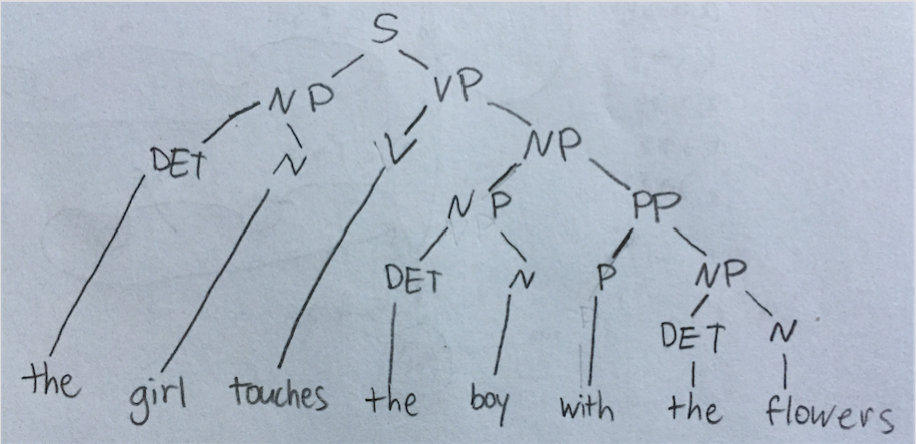 S
NP VP
DET N V NP
NP PP
DET N P NP
DET N
the girl touches the boy with the flowers